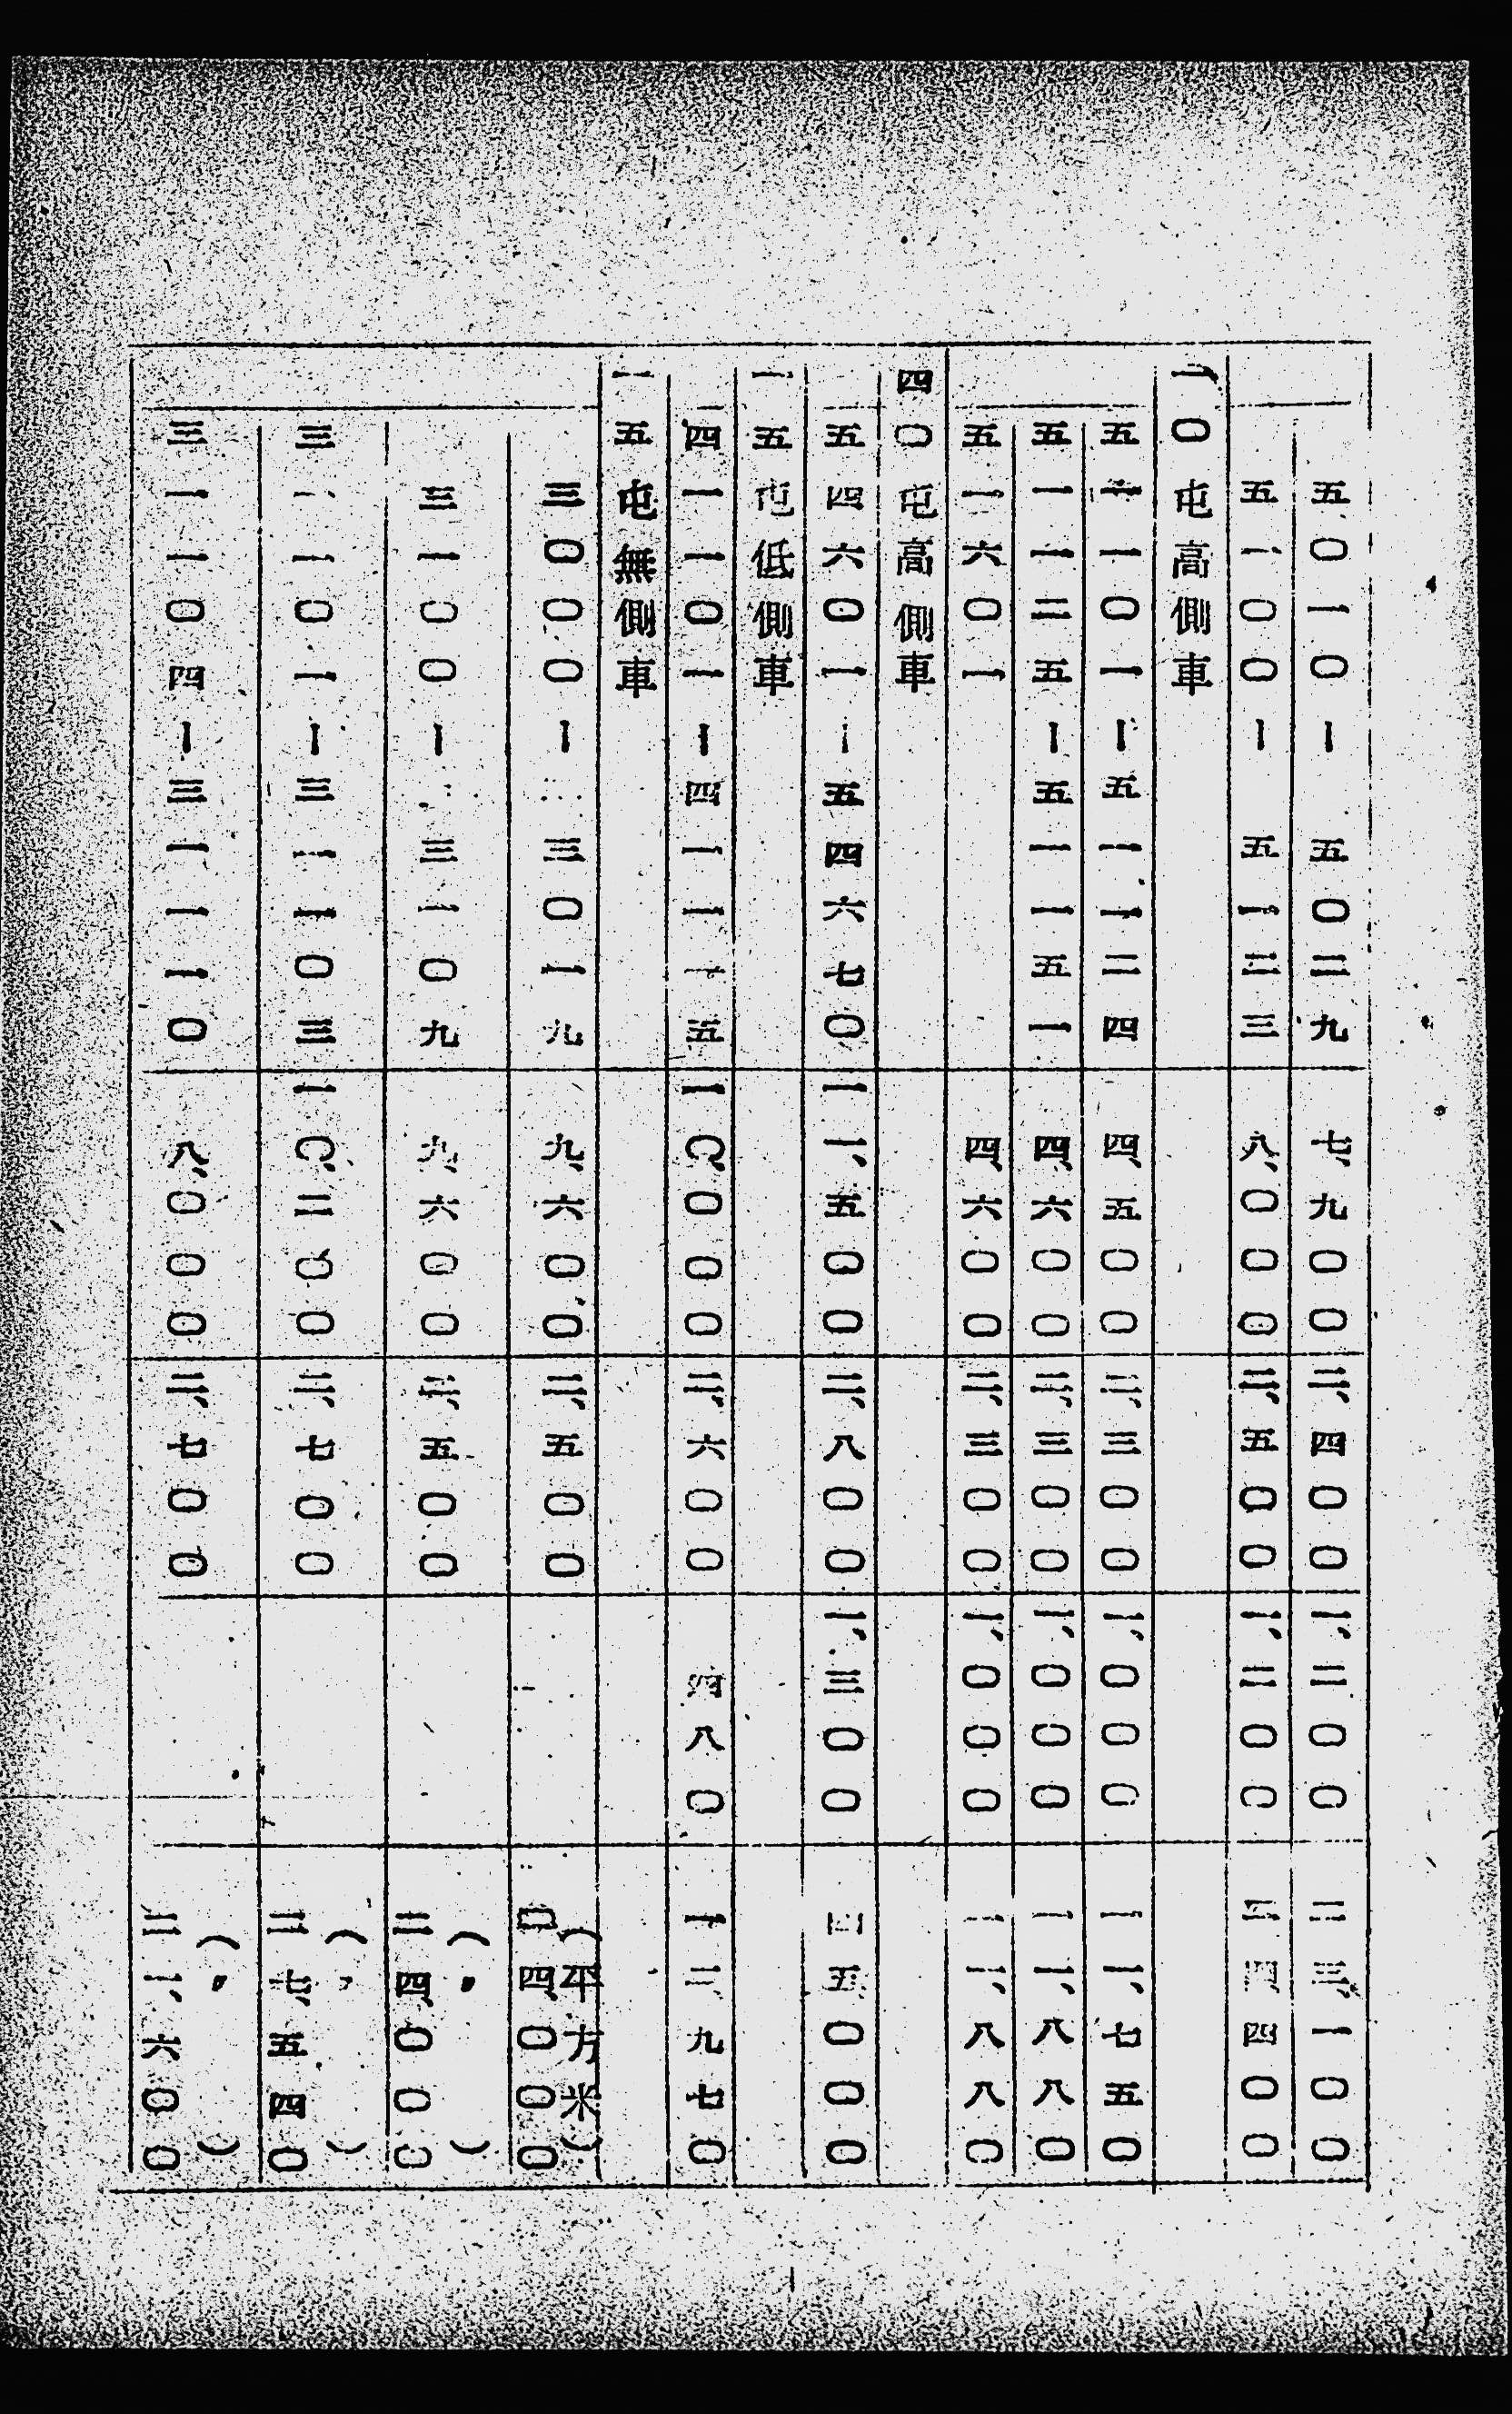 五〇一〇ー五〇二九 七、九〇〇 二、四〇〇 一、二〇〇 二三、一〇〇
五一〇〇ー五一二三 八、〇〇〇 二、五〇〇 一、二〇〇 二四、四〇〇
一〇屯高側車
五一一〇一ー五一一二四 四、五〇〇 二、三〇〇 一、〇〇〇 一一、七五〇
五一一二五ー五一一五一 四、六〇〇 二、三〇〇 一、〇〇〇 一一、八八〇
五一六〇一 四、六〇〇 二、三〇〇 一、〇〇〇 一一、八八〇
四〇屯高側車
五四六〇一ー五四六七〇 一一、五〇〇 二、八〇〇 一、三〇〇 四五〇〇〇
一五屯低側車
四一一〇一ー四一一一五 一〇、〇〇〇 二、六〇〇 四八〇 一二、九七〇
一五屯無側車
三〇〇〇ー三〇一九 九、六〇〇 二、五〇〇 (平方米) 二四、〇〇〇
三一〇〇ー三一〇九 九、六〇〇 二、五〇〇 (〃) 二四、〇〇〇
三一一〇一ー三一一〇三 一〇、二〇〇 二、七〇〇 (〃) 二七、五四〇
三一一〇四ー三一一一〇 八、〇〇〇 二、七〇〇 (〃) 二一、六〇〇